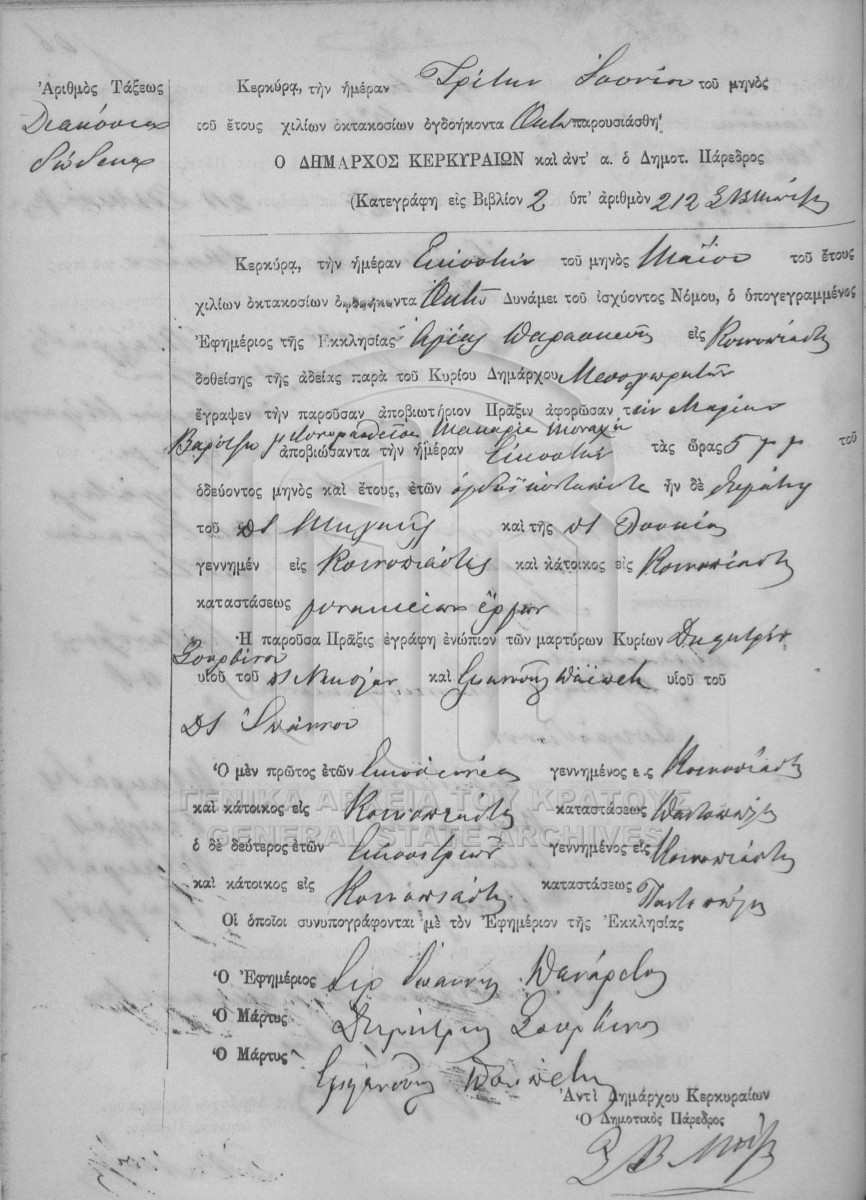 Ἀριθμὸς Τάξεως
Διακόσια
δώδεκα
Κερκύρα, τὴν ἡμέραν Τρίτην Ἰουνίου τοῦ μηνὸς
τοῦ ἔτους χιλίων ὀκτακοσίων ὀγδοήκοντα Ὀκτὼ παρουσιάσθη
Ο ΔΗΜΑΡΧΟΣ ΚΕΡΚΥΡΑΙΩΝ καὶ ἀντ' α. ὁ Δημοτ. Πάρεδρος
(Κατεγράφη εἰς Βιβλίον 2 ὑπ' ἀριθμὸν 212
Κερκύρα, τὴν ἡμέραν Εἰκοστὴν τοῦ μηνὸς Μαΐου τοῦ ἔτους
χιλίων ὀκτακοσίων ὀγδοήκοντα Ὀκτὼ Δυνάμει τοῦ ἰσχύοντος Νόμου, ὁ ὑπογεγραμμένος
Ἐφημέριος τῆς Ἐκκλησίας Ἁγίας Παρασκευῆς εἰς Κοινοπιάστη
δοθείσης τῆς ἀδείας παρὰ τοῦ Κυρίου Δημάρχου Μεσοχωριτῶν
ἔγραψεν τὴν παροῦσαν ἀποβιωτήριον Πρᾶξιν ἀφορῶσαν τὴν Μαρίαν
μετονομασθεῖσα Μακαρία Μοναχή
ἀποβιώσαντα τὴν ἡμέραν Εἰκοστὴν τὰς ὥρας 5 μ μ τοῦ
ὁδεύοντος μηνὸς καὶ ἔτους, ἐτῶν ὀγδοήκοντα ἦν δὲ θυγάτηρ
τοῦ Μιχαὴλ καὶ τῆς
γεννημέν εἰς Κοινοπιάστες καὶ κάτοικος εἰς Κοινοπιάστη
καταστάσεως γυναικείων ἔργων
Ἡ παροῦσα Πρᾶξις ἐγράφη ἐνώπιον τῶν μαρτύρων Κυρίων Δημητρίου
Σουρβίνου
υἱοῦ τοῦ Νικολάου καὶ υἱοῦ τοῦ
Ἰωάννου
Ὁ μὲν πρῶτος ἐτῶν Εἰκοσιεννέα γεννημένος εἰς Κοινοπιάστη
καὶ κάτοικος εἰς Κοινοπιάστη καταστάσεως Παντοπώλης
ὁ δὲ δεύτερος ἐτῶν Εἰκοσιτριῶν γεννημένος εἰς Κοινοπιάστη
καὶ κάτοικος εἰς Κοινοπιάστη καταστάσεως Παντοπώλης
Οἱ ὁποῖοι συνυπογράφονται μὲ τὸν Ἐφημέριον τῆς Ἐκκλησίας
ΓΕΝΙΚΑ ΑΡΧΕΙΑ ΤΟΥ ΚΡΑΤΟΥΣ
GENERAL STATE ARCHIVES
Ὁ Ἐφημέριος Ἰωάννης Πανάρετος
Ὁ Μάρτυς Δημήτριος Σουρβίνος
Ὁ Μάρτυς
Ἀντὶ Δημάρχου Κερκυραίων
Ὁ Δημοτικὸς Πάρεδρος